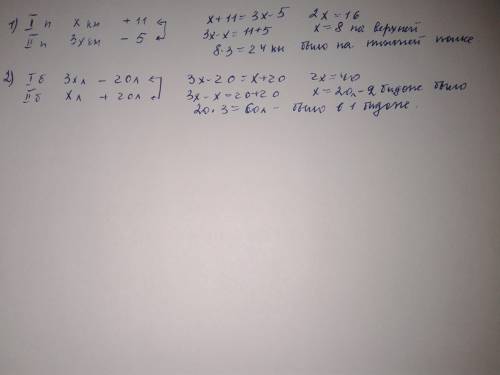 1) I п x кн + 11 x + 11 = 3x - 5 2x = 16
II п 3x кн - 5 3x - x = 11 + 5 x = 8 на верхней
8 · 3 = 24 кн было на нижней полке
2) I б 3x л - 20 л 3x - 20 = x + 20 2x = 40
II б x л + 20 л 3x - x = 20 + 20 x = 20 л - 2 бидоне было
20 · 3 = 60 л - было в 1 бидоне.